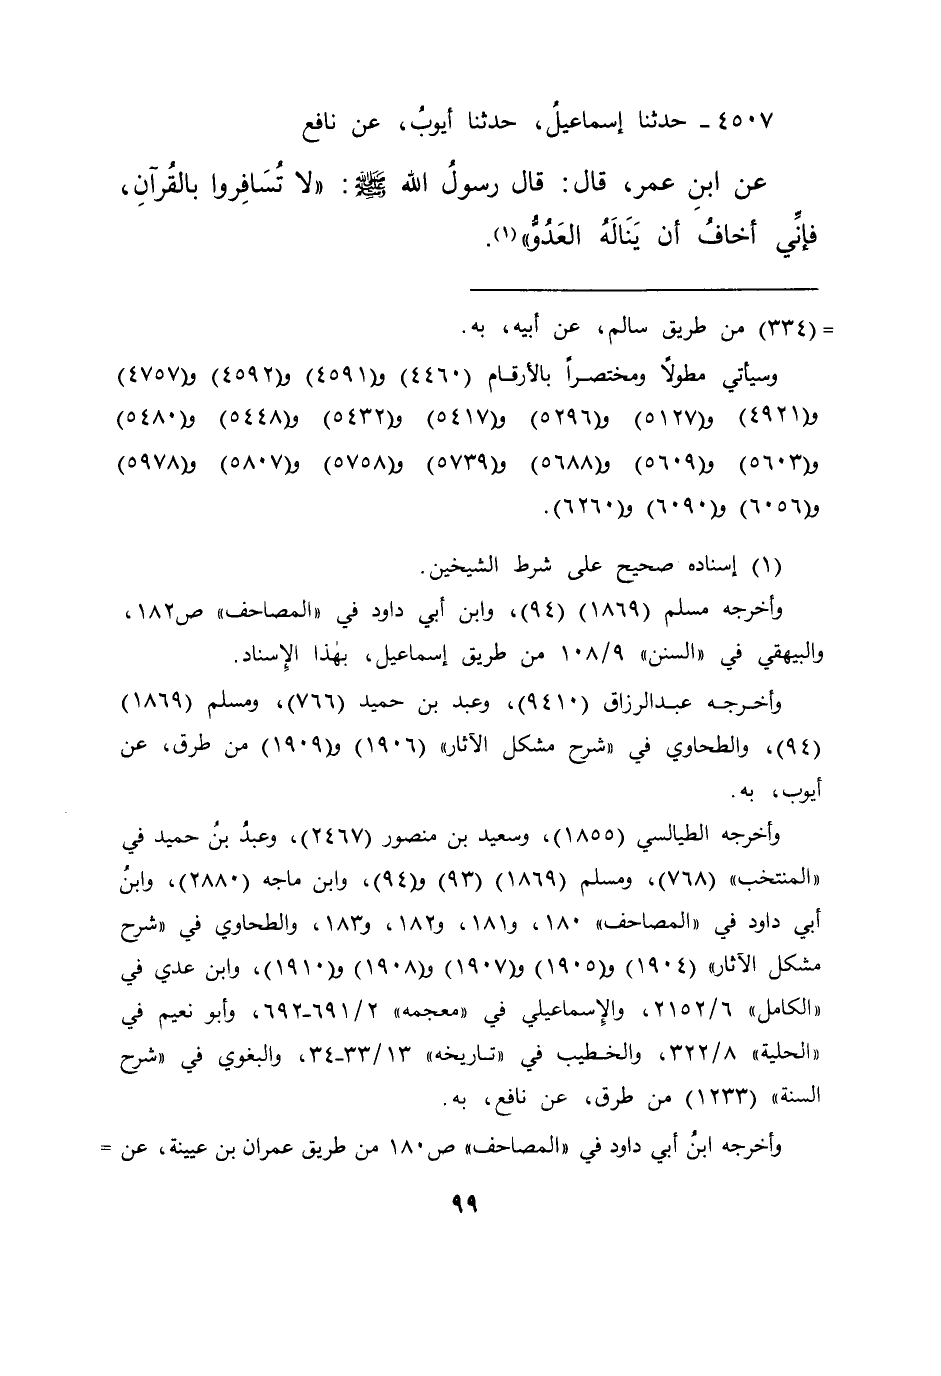 ٤٥٠٧ ـ حدثنا إسماعيلُ، حدثنا أيوبُ، عن نافع
عن ابنِ عمر، قال: قال رسولُ الله ﷺ: «لا تُسَافِروا بالقُرآنِ،
فإنِّي أخافُ أن يَنَالَهُ العَدُوُّ»(١).
= (٣٣٤) من طريق سالم، عن أبيه، به.
وسيأتي مطولاً ومختصراً بالأرقام (٤٤٦٠) و(٤٥٩١) و(٤٥٩٢) و(٤٧٥٧)
و(٤٩٢١) و(٥١٢٧) و(٥٢٩٦) و(٥٤١٧) و(٥٤٣٢) و(٥٤٤٨) و(٥٤٨٠)
و(٥٦٠٣) و(٥٦٠٩) و(٥٦٨٨) و(٥٧٣٩) و(٥٧٥٨) و(٥٨٠٧) و(٥٩٧٨)
و(٦٠٥٦) و(٦٠٩٠) و(٦٢٦٠).
(١) إسناده صحيح على شرط الشيخين.
وأخرجه مسلم (١٨٦٩) (٩٤)، وابن أبي داود في «المصاحف» ص١٨٢،
والبيهقي في «السنن» ١٠٨/٩ من طريق إسماعيل، بهٰذا الإِسناد.
وأخرجه عبدالرزاق (٩٤١٠)، وعبد بن حميد (٧٦٦)، ومسلم (١٨٦٩)
(٩٤)، والطحاوي في «شرح مشكل الآثار» (١٩٠٦) و(١٩٠٩) من طرق، عن
أيوب، به.
وأخرجه الطيالسي (١٨٥٥)، وسعيد بن منصور (٢٤٦٧)، وعبدُ بنُ حميد في
«المنتخب» (٧٦٨)، ومسلم (١٨٦٩) (٩٣) و(٩٤)، وابن ماجه (٢٨٨٠)، وابنُ
أبي داود في «المصاحف» ١٨٠، و١٨١، و١٨٢، و١٨٣، والطحاوي في «شرح
مشكل الآثار» (١٩٠٤) و(١٩٠٥) و(١٩٠٧) و(١٩٠٨) و(١٩١٠)، وابن عدي في
«الكامل» ٢١٥٢/٦، والإِسماعيلي في «معجمه» ٦٩١/٢-٦٩٢، وأبو نعيم في
«الحلية» ٣٢٢/٨، والخطيب في «تاريخه» ٣٣/١٣-٣٤، والبغوي في «شرح
السنة» (١٢٣٣) من طرق، عن نافع، به.
وأخرجه ابنُ أبي داود في «المصاحف» ص١٨٠ من طريق عمران بن عيينة، عن =
٩٩